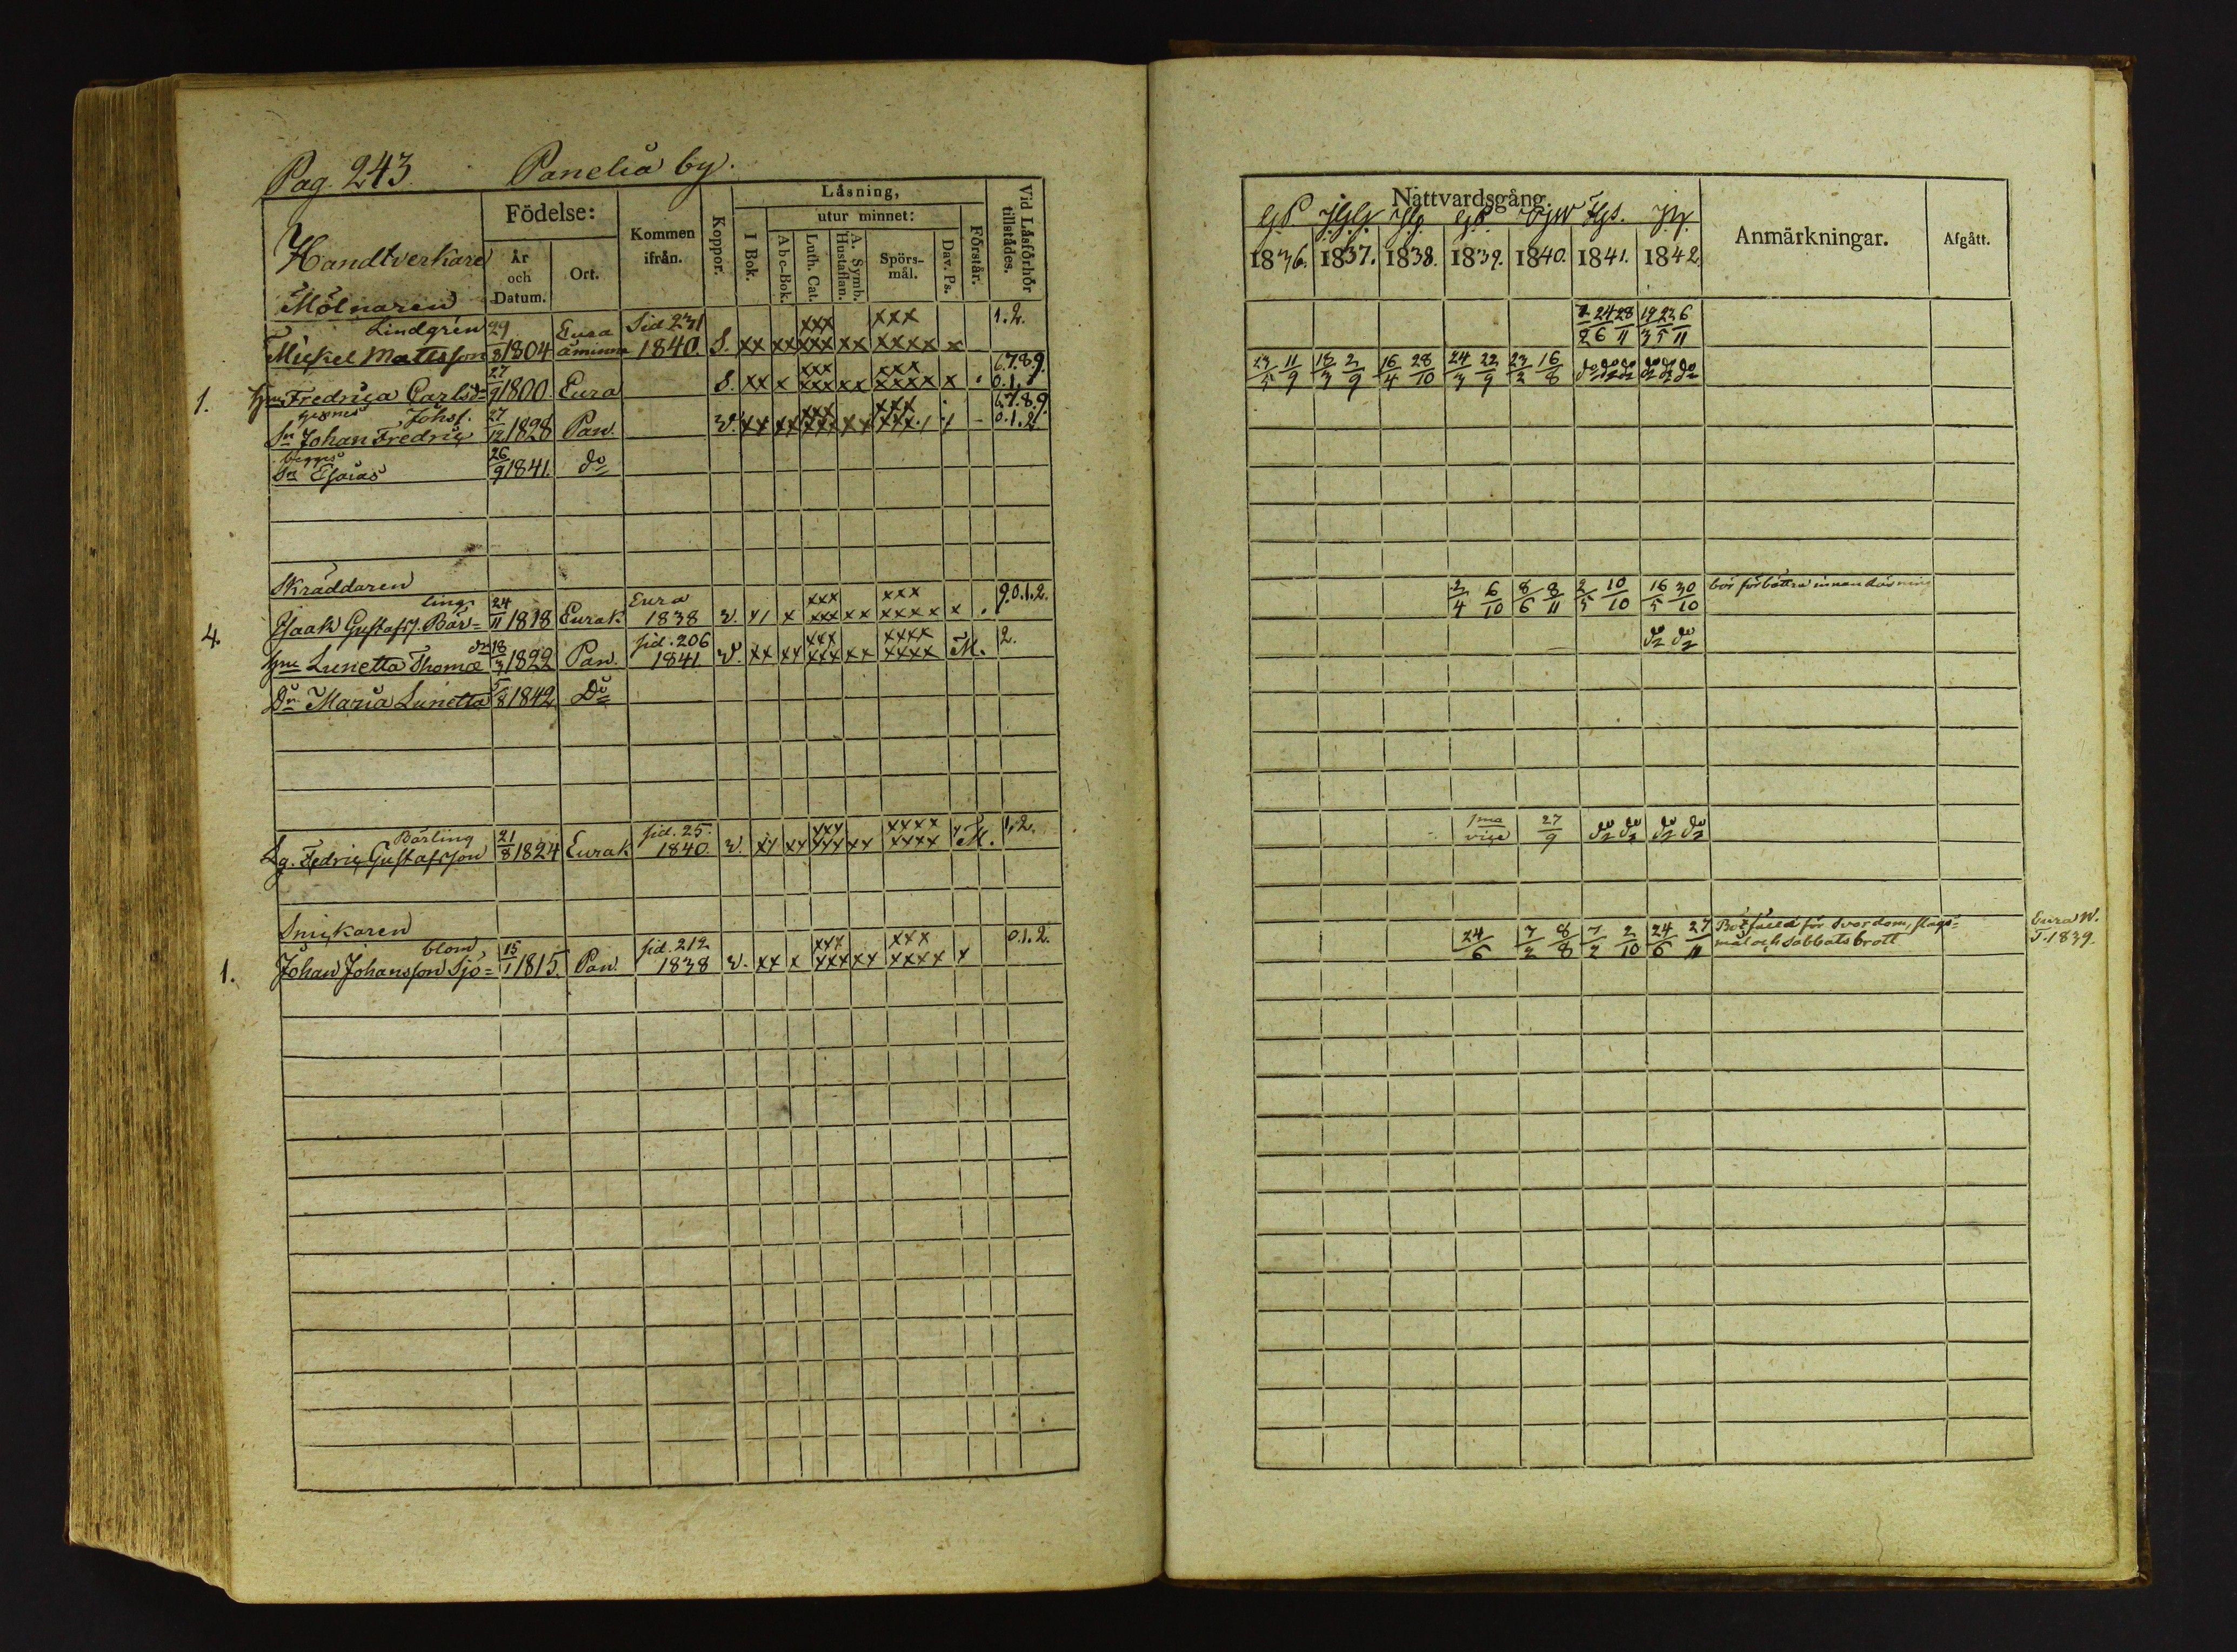 Pag. 243. Panelia by.
Födelse: Kommen ifrån. Koppor. Läsning, Vid Läsförhör tillstädes.
utur minnet:
Handtverkare År och Datum. Ort. I Bok. Abc-Bok. Luth. Cat. A. Symb. Hustaflan. Spörs-mål. Dav. Ps. Förstår.
Mölnaren
Lindgrén 29 Eura Sid 231 xxx xxx 1.2.
Mickel Mattsson 8 1804 åminne 1840. S. xx xx xxx xx xxxx x
27 xxx xxx 6.7.8.9.
1. Hu Fredrica Carlsd= 9 1800. Eura S. xx x xxx xx xxxx x 0.1.
Johsf. 27 xxx xxx 6.7.8.9.
Sn Johan Fredric 12 1828 Pan. V. xx xx xxx xx 0.1.2.
begges 26
Sn Esaias 9 1841. do
Skräddaren
ling 24 Eura xxx xxx 9.0.1.2.
4. Isaak Gustafss. Bär= 11 1818 Eurak 1838 v. x x xxx xx xxxx x
dr 18 sid. 206 xxx xxxx
Hu Lunetta Thomæ 3 1822 Pan. 1841. V. xx xx xxx xx xxxx M. 2.
5
Dr Maria Lunetta 8 1842 Do
Bärling 21 sid. 25. xxx xxxx 1.2.
Lg. Fredric Gustafsson 8 1824 Eurak 1840. v. xx xx xxx xx xxxx M.
Snickaren
blom 15 sid. 212 xxx xxx 0.1.2.
1. Johan Johansson Sjö= 1 1815. Pan. 1838 v. xx x xxx xx xxxx x
Nattvardsgång. Anmärkningar. Afgått.
1836. 1837. 1838. 1839. 1840. 1841. 1842.
24 28 19 23 6
2 6 11 3 5 11
23 11 18 2 16 28 24 22 23 16 do do do do do do
5 9 3 9 4 10 3 9 2 8
2 6 8 8 2 10 16 30 bör förbättra innanläsning
4 10 6 11 5 10 5 10
do do
1ma 27 do do do do
vice 9
24 7 8 7 2 24 27 Botfälld för svordom, slags= Eura W.
6 2 8 2 10 6 11 mål och Sabbatsbrott T. 1839.